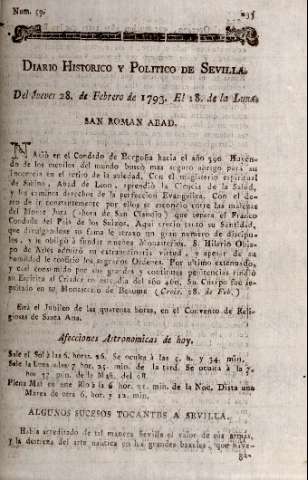 Num. 59.
235
DIARIO HISTORICO Y POLITICO DE SEVILLA.
Del Jueves 28. de Febrero de 1793. El 18. de la Luna.
SAN ROMAN ABAD.
Nació en el Condado de Borgoña hacia el año 390 Huyén-
do de los tumultos del mundo buscó mas seguro abrigo para su
inocencia en el retiro de la soledad. Con el magisterio espiritual
de Sabino, Abad de Leon, aprendió la Ciencia de la Salud,
y los caminos derechos de la perfeccion Evangelica. Con el de-
seo de ir constantemente por ellos se escondió entre las malezas
del Monte Jura (ahora de San Claudio) que separa el Franco
Condado del Pais de los Suizos. Aqui creció tanto su Santidad,
que divulgandose su fama le atraxo un gran numero de discipu-
los, y le obligó á fundar muchos Monasterios. S. Hilario Obis-
po de Arles admiró su extraordinaria virtud, y apesar de su
humildad le confirió los sagrados Ordenes. Por ultimo extenuado,
y casi consumido por sus grandes y continuas penitencias rindió
su Espiritu al Criador en este dia del año 460. Su Cuerpo fue se-
pultado en su Monasterio de Beaume. (Croix. 28. de Feb.)
Está el Jubileo de las quarenta horas, en el Convento de Reli-
giosas de Santa Ana.
Afecciones Astronomicas de hoy.
Sale el Sol á las 6. horas. 26. Se oculta á las 5. h. y 34. min.
Sale la Luna á las 7 hor. 25. min. de la tard. Se oculta á la 7.
hor 37 min. de la Mañ. del 28.
Plena Mar en este Rio á la 6 hor. 21. min. de la Noc. Dista una
Marea de otra 6. hor. y 12. min.
ALGUNOS SUCESOS TOCANTES A SEVILLA.
Habia acreditado de tal manera Sevilla el valor de sus armas,
y la destreza del arte nautica en los grandes baxeles, que nave-
ga-